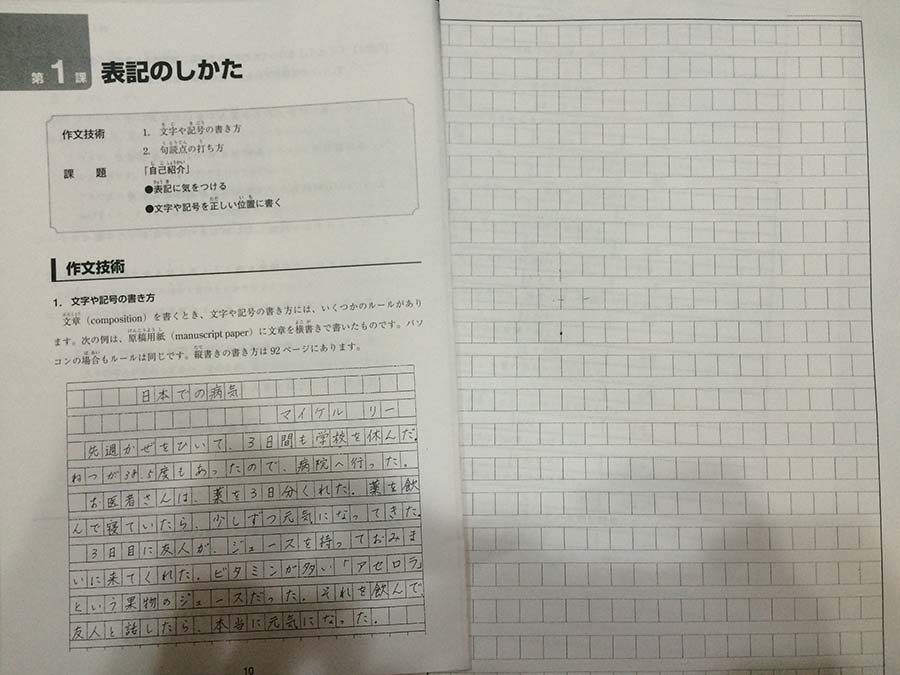 第1課 表記のしかた
作文技術 1. 文字や記号の書き方
2. 句読点の打ち方
課題 「自己紹介」
●表記に気をつける
●文字や記号を正しい位置に書く
作文技術
1. 文字や記号の書き方
文章（composition）を書くとき、文字や記号の書き方には、いくつかのルールがあり
ます。次の例は、原稿用紙（manuscript paper）に文章を横書きで書いたものです。パソ
コンの場合もルールは同じです。縦書きの書き方は92ページにあります。
日本での病気
マイケル リー
先週かぜをひいて、3日間も学校を休んだ。
ねつが38.5度もあったので、病院へ行った。
お医者さんは、薬を3日分くれた。薬を飲
んで寝ていたら、少しずつ元気になってきた。
3日目に友人が、ジュースを持っておみま
いに来てくれた。ビタミンが多い「アセロラ」
という果物のジュースだった。それを飲んで、
友人と話したら、本当に元気になった。
10